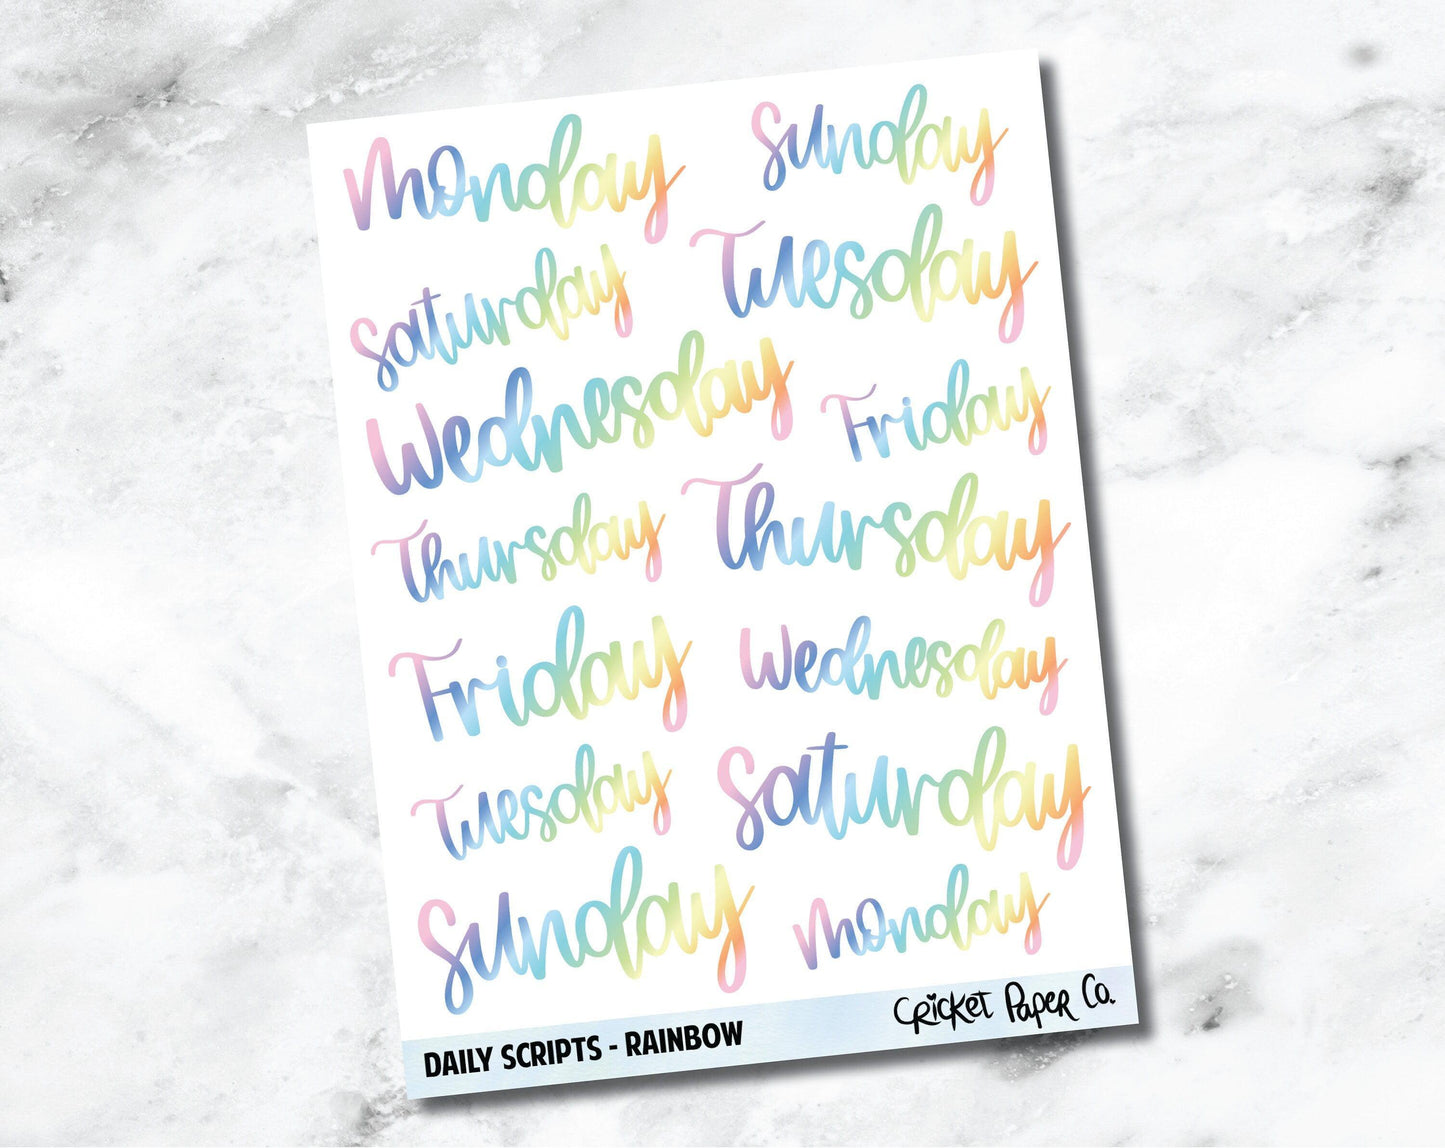 Monday
Sunday
Saturday
Tuesday
Wednesday
Friday
Thursday
Thursday
Friday
Wednesday
Tuesday
Saturday
Sunday
Monday
DAILY SCRIPTS - RAINBOW
CRicKET PAPER Co.